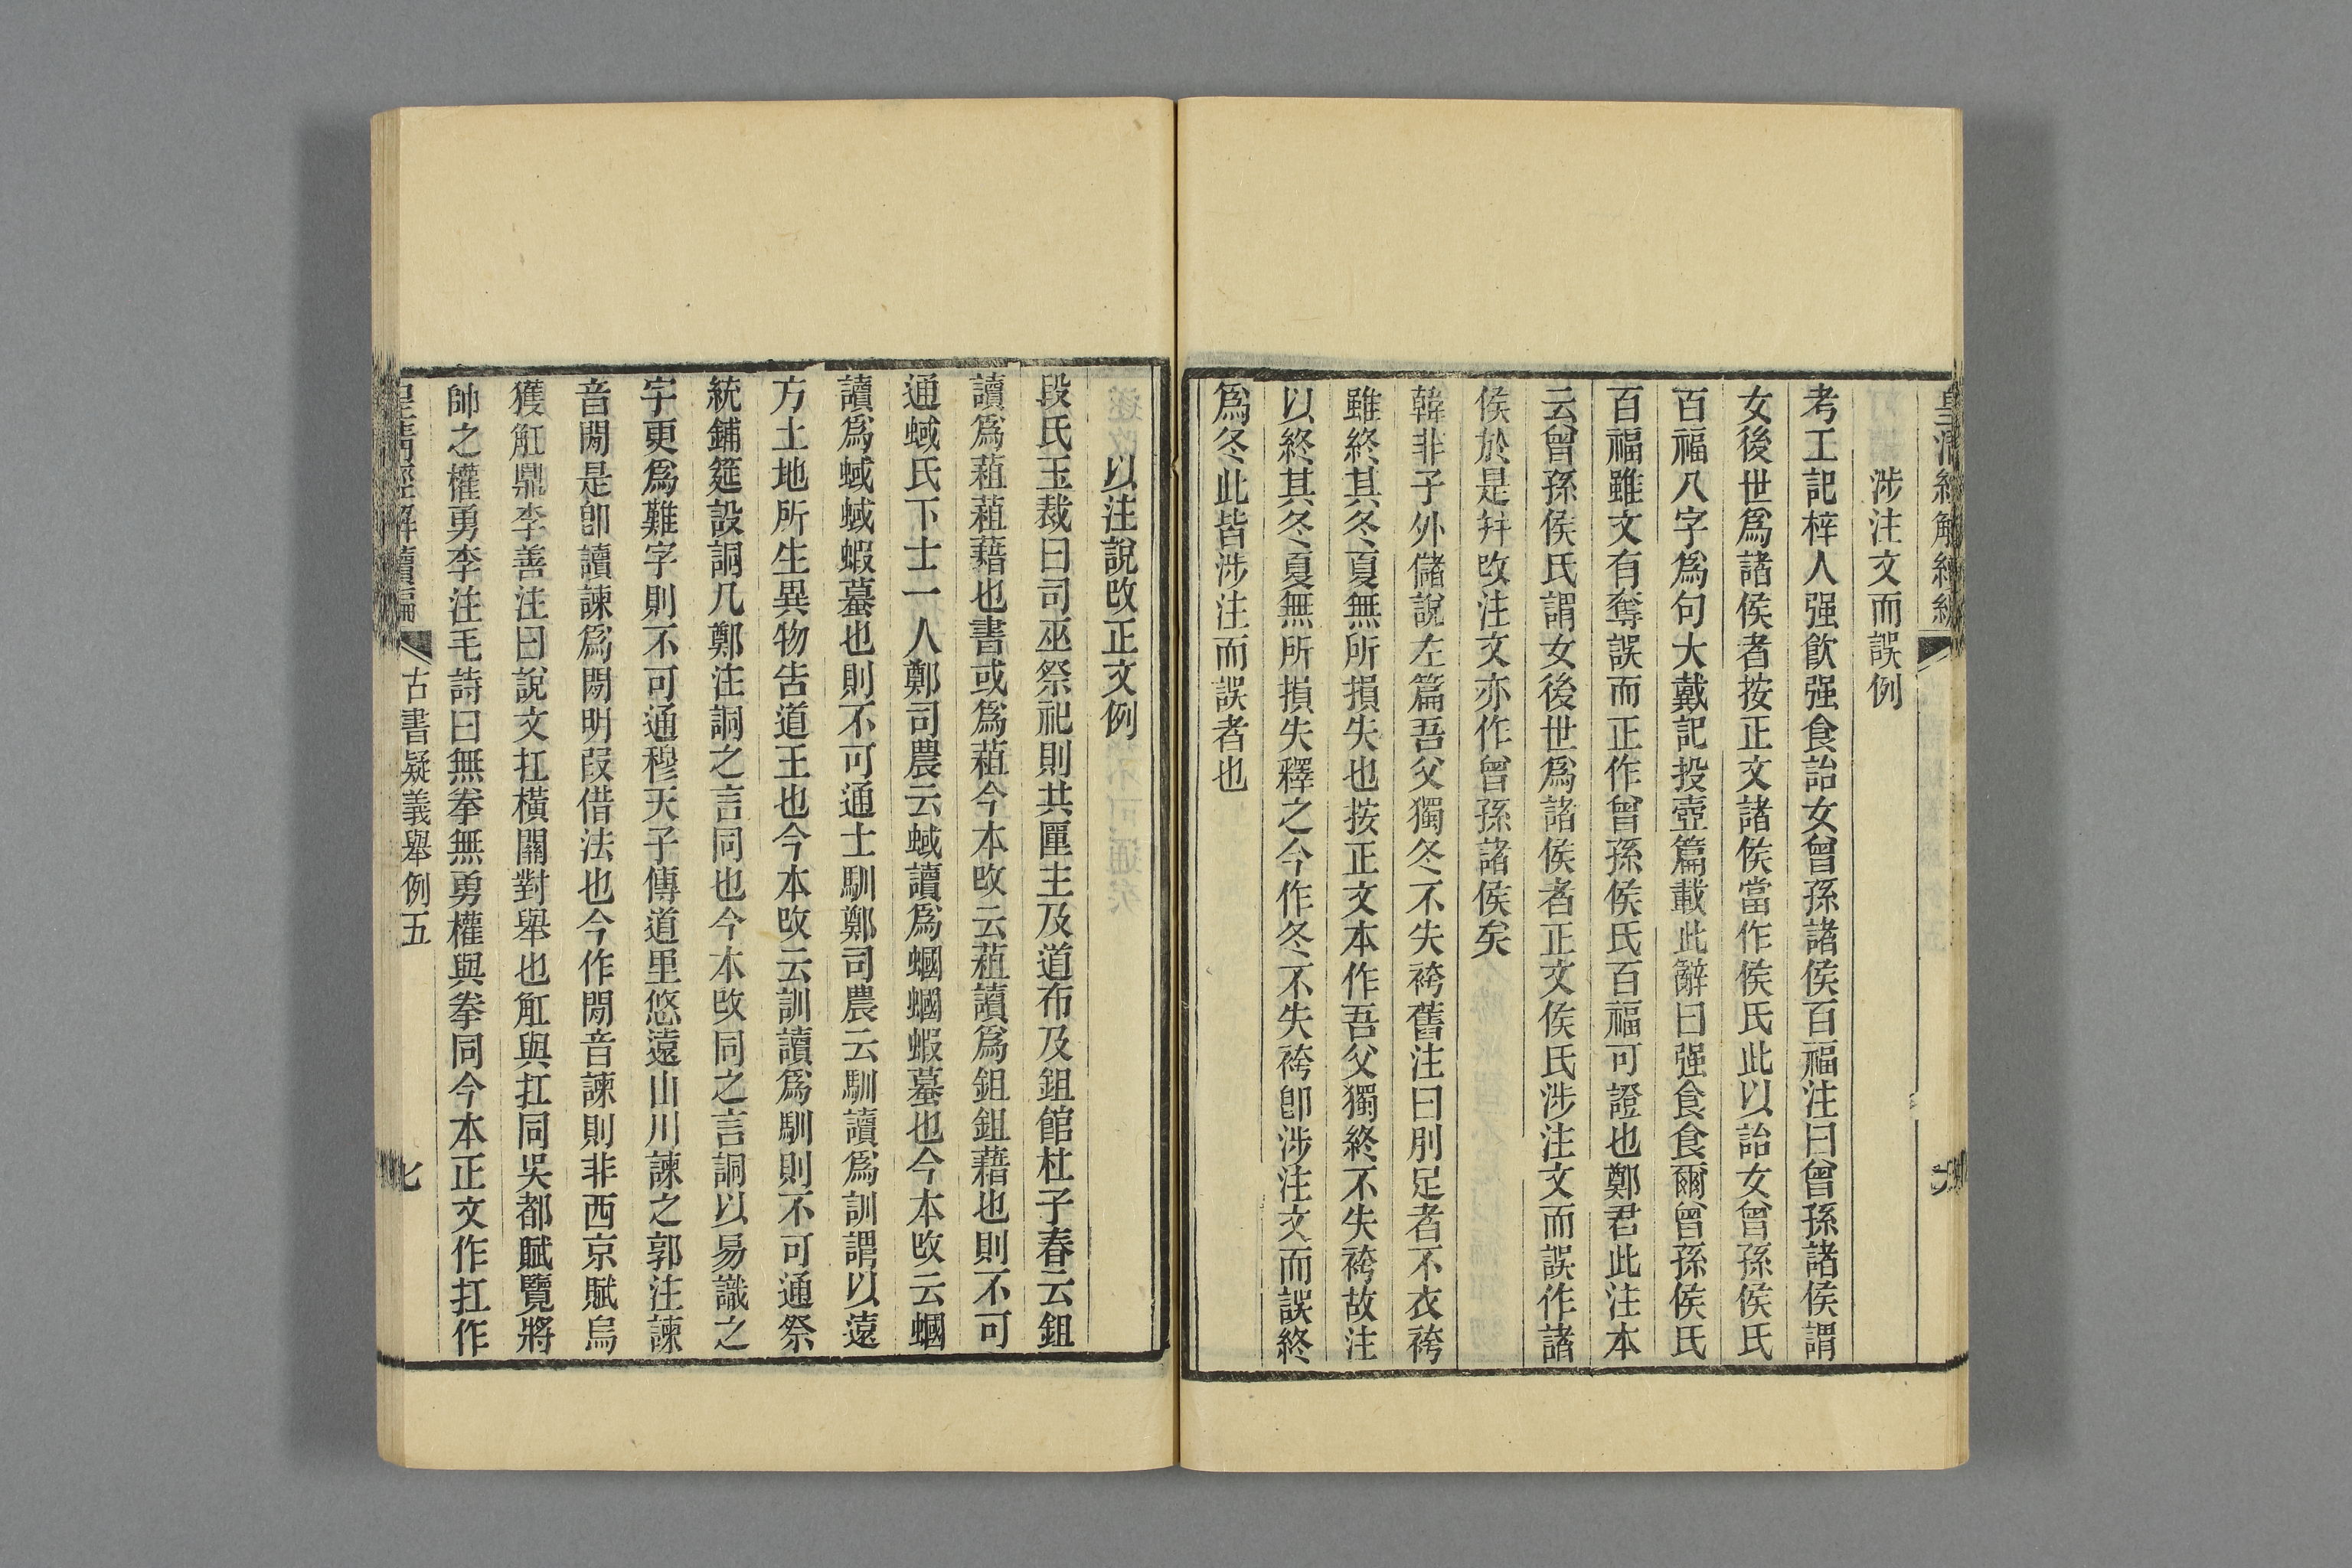 皇清經解續編
涉注文而誤例
考工記梓人强飮强食詒女曾孫諸侯百福注曰曾孫諸侯謂
女後世爲諸侯者按正文諸侯當作侯氏此以詒女曾孫侯氏
百福八字爲句大戴記投壺篇載此辭曰强食食爾曾孫侯氏
百福雖文有奪誤而正作曾孫侯氏百福可證也鄭君此注本
云曾孫侯氏謂女後世爲諸侯者正文侯氏涉注文而誤作諸
侯於是幷改注文亦作曾孫諸侯矣
韓非子外儲說左篇吾父獨冬不失袴舊注曰刖足者不衣袴
雖終其冬夏無所損失也按正文本作吾父獨終不失袴故注
以終其冬夏無所損失釋之今作冬不失袴卽涉注文而誤終
爲冬此皆涉注而誤者也
以注說改正文例
段氏玉裁曰司巫祭祀則共匰主及道布及鉏館杜子春云鉏
讀爲蒩蒩藉也書或爲蒩今本改云蒩讀爲鉏鉏藉也則不可
通蜮氏下士一人鄭司農云蜮讀爲蟈蟈蝦蟇也今本改云蟈
讀爲蜮蜮蝦蟇也則不可通土馴鄭司農云馴讀爲訓謂以遠
方土地所生異物告道王也今本改云訓讀爲馴則不可通祭
統鋪筵設詷几鄭注詷之言同也今本改同之言詷以易識之
字更爲難字則不可通穆天子傳道里悠遠山川諫之郭注諫
音閒是卽讀諫爲閒明叚借法也今作閒音諫則非西京賦烏
獲舡鼎李善注曰說文扛橫關對舉也舡與扛同吳都賦覽將
帥之權勇李注毛詩曰無拳無勇權與拳同今本正文作扛作
皇淸經解續編
古書疑義舉例五
七